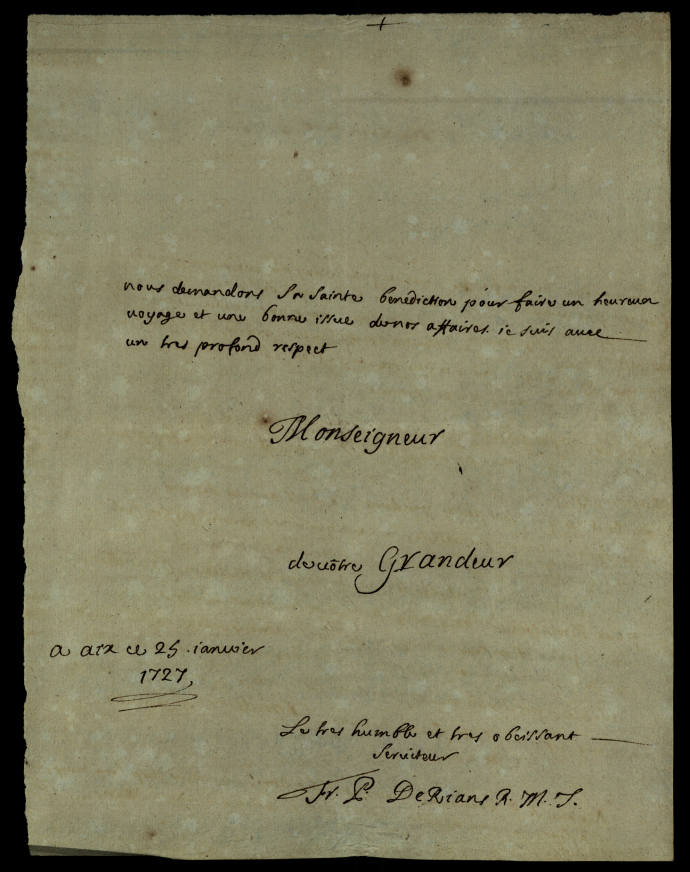 nous demandons Sa Sainte benediction pour faire un heureux
voyage et une bonne issue denos affaires. ie suis avec
un tres profond respect
Monseigneur
de vôtre Grandeur
a aix ce 25. ianvier
1727,
Le tres humble et tres obeissant
Serviteur
Fr. P. DeRians R. M. J.